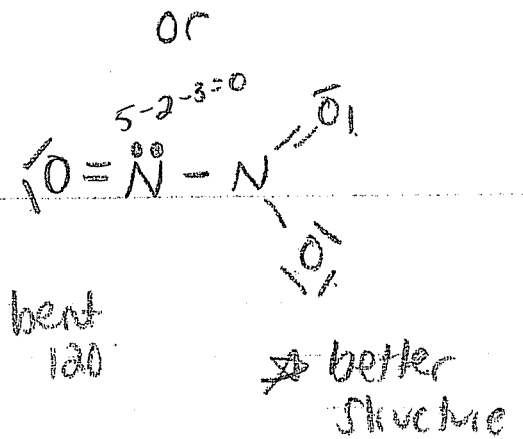 or
5-2-3=0
O = N - N
O
O
bent
120
better
structure